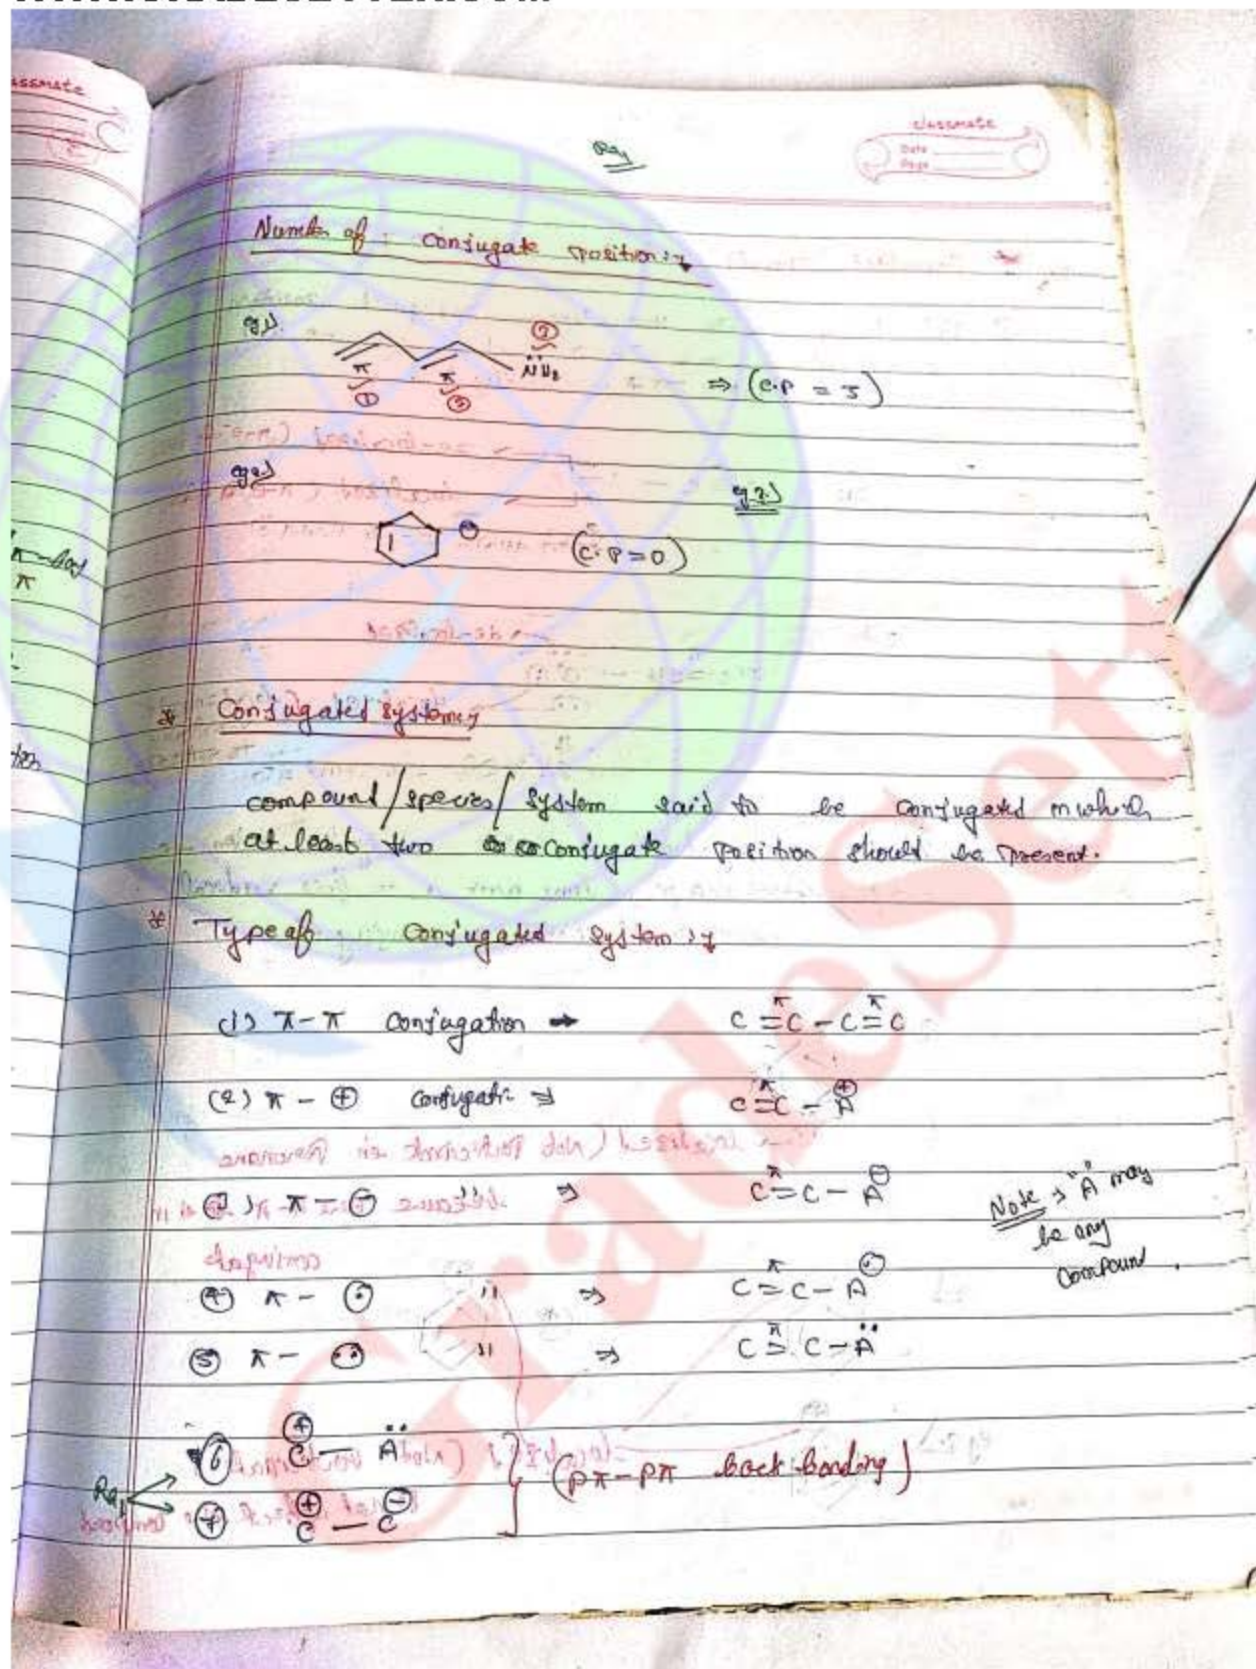 classmate
Date
Page
Number of : conjugate position :→
eg 1)
② 
N̈H₂
π π
① ③
⇒ (C.P = 3)
eg 2)
eg 3.)
⊖
(C.P = 0)
* Conjugated System →
compound/species/system said to be conjugated in which
at least two conjugate position should be present.
* Type of conjugated system :→
(1) π-π conjugation → C=C-C=C
(2) π - ⊕ conjugati- ⇒ C=C-A
(3) π - ⊖ ⇒ C=C-A
Note → "A" may
be any
compound.
④ π - ⊙ '' ⇒ C=C-A
⑤ π - '' ⇒ C=C-Ä
⑥ C⊕ - Ä
(pπ-pπ back bonding)
⑦ C⊕ - C⊖
GradeSetter